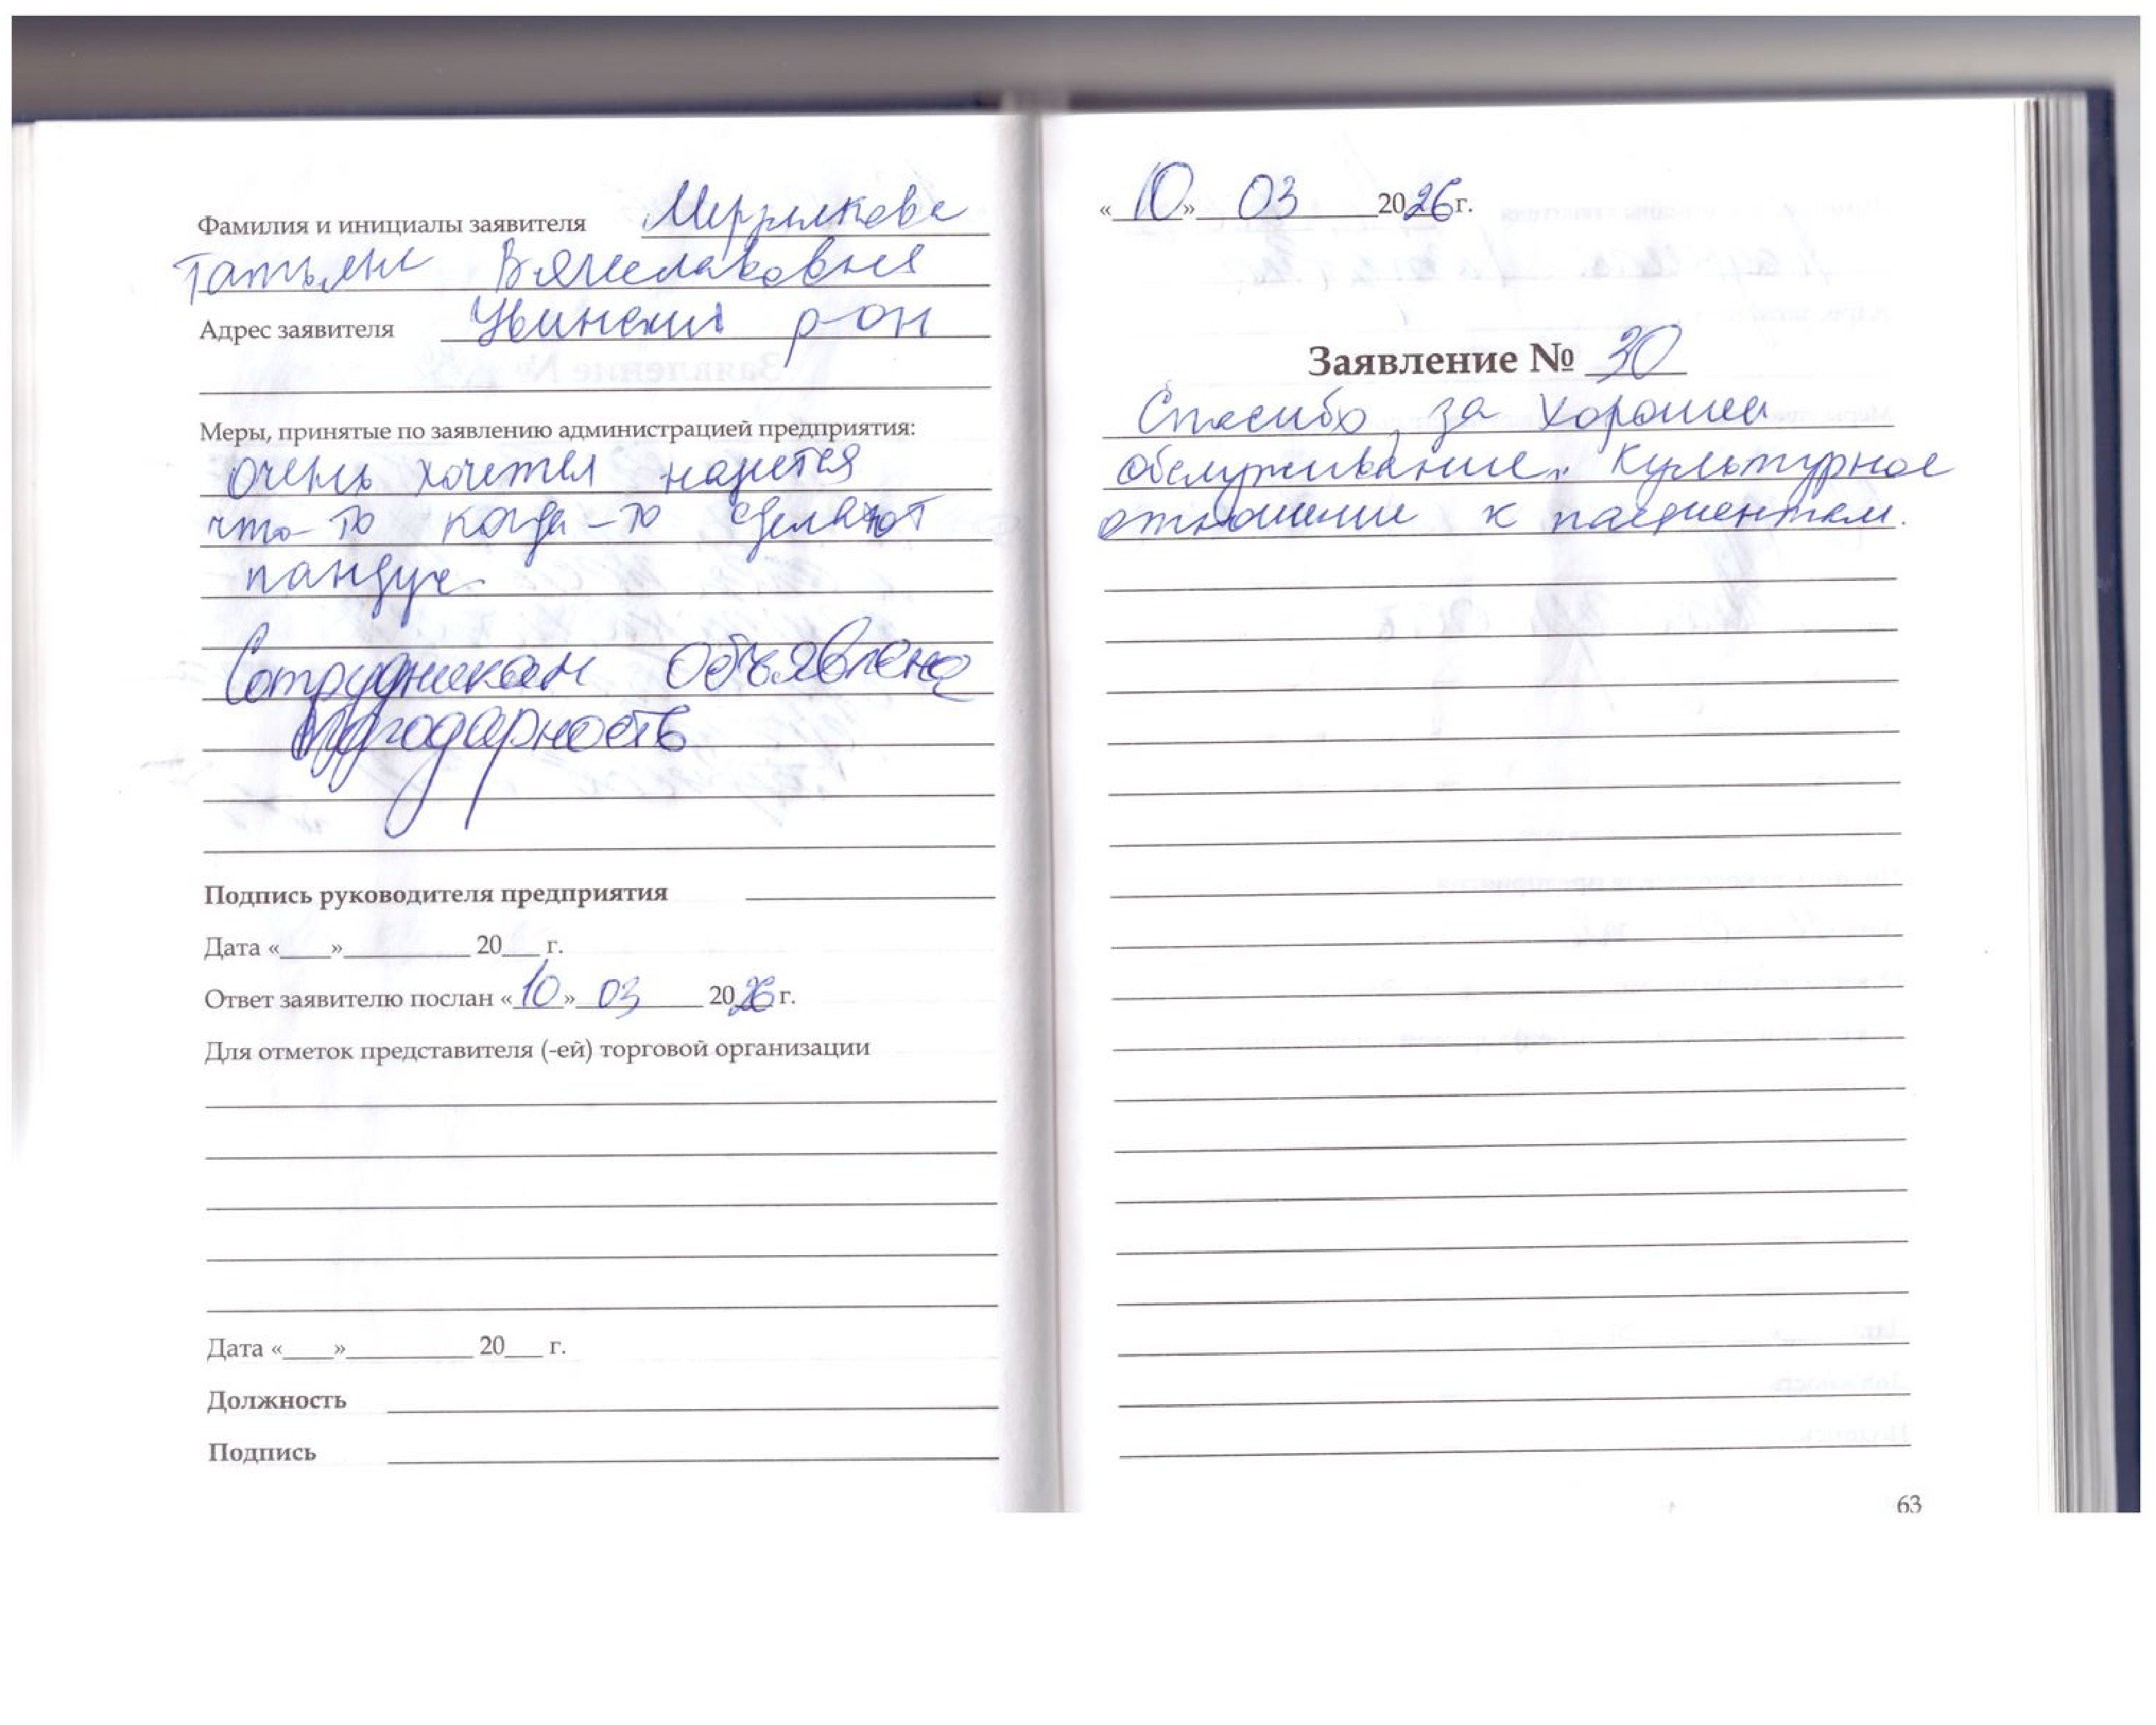 Фамилия и инициалы заявителя Мерзлякова
Татьяна Вячеславовна
Адрес заявителя Увинский р-он
Меры, принятые по заявлению администрацией предприятия:
очень хочется
что-то когда-то сделают
пандус
Сотрудникам объявлена
благодарность
Подпись руководителя предприятия
Дата «____»__________ 20___ г.
Ответ заявителю послан «10» 03 2026 г.
Для отметок представителя (-ей) торговой организации
Дата «____»__________ 20___ г.
Должность
Подпись
«10» 03 2026 г.
Заявление № 30
Спасибо, за хорошее
обслуживание. Культурное
отношение к пациентам.
63